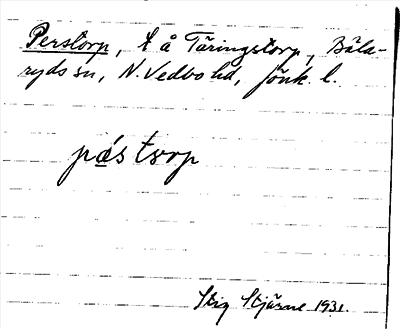 Perstorp, t å Täringstorp, Bäla-
ryds sn, N. Vedbo hd, Jönk. l.
pástorp
Stig Stjärne 1931.